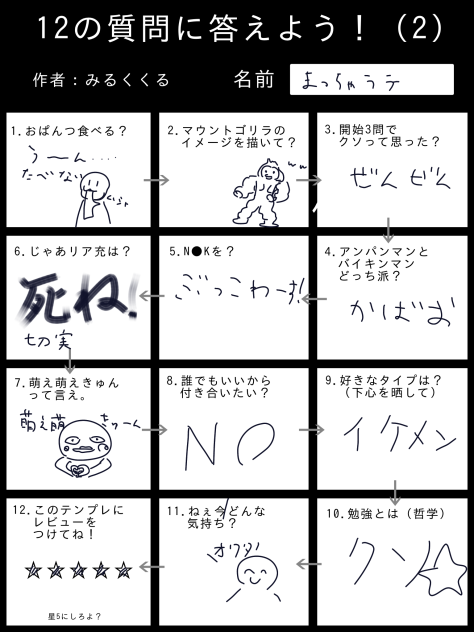 12の質問に答えよう！（2）
作者：みるくくる
名前 まっちゃラテ
1.おぱんつ食べる？
う～ん....
たべない
2.マウントゴリラの
イメージを描いて？
ww
3.開始3問で
クソって思った？
ぜんぜん
4.アンパンマンと
バイキンマン
どっち派？
かばお
5.N●Kを？
ぶっこわーす!
6.じゃあリア充は？
死ね!
切実
7.萌え萌えきゅん
って言え。
萌え萌
きゅーん
8.誰でもいいから
付き合いたい？
NO
9.好きなタイプは？
（下心を晒して）
イケメン
10.勉強とは（哲学）
クソ
11.ねぇ今どんな
気持ち？
オワタ
12.このテンプレに
レビューを
つけてね！
★★★★★
星5にしろよ？